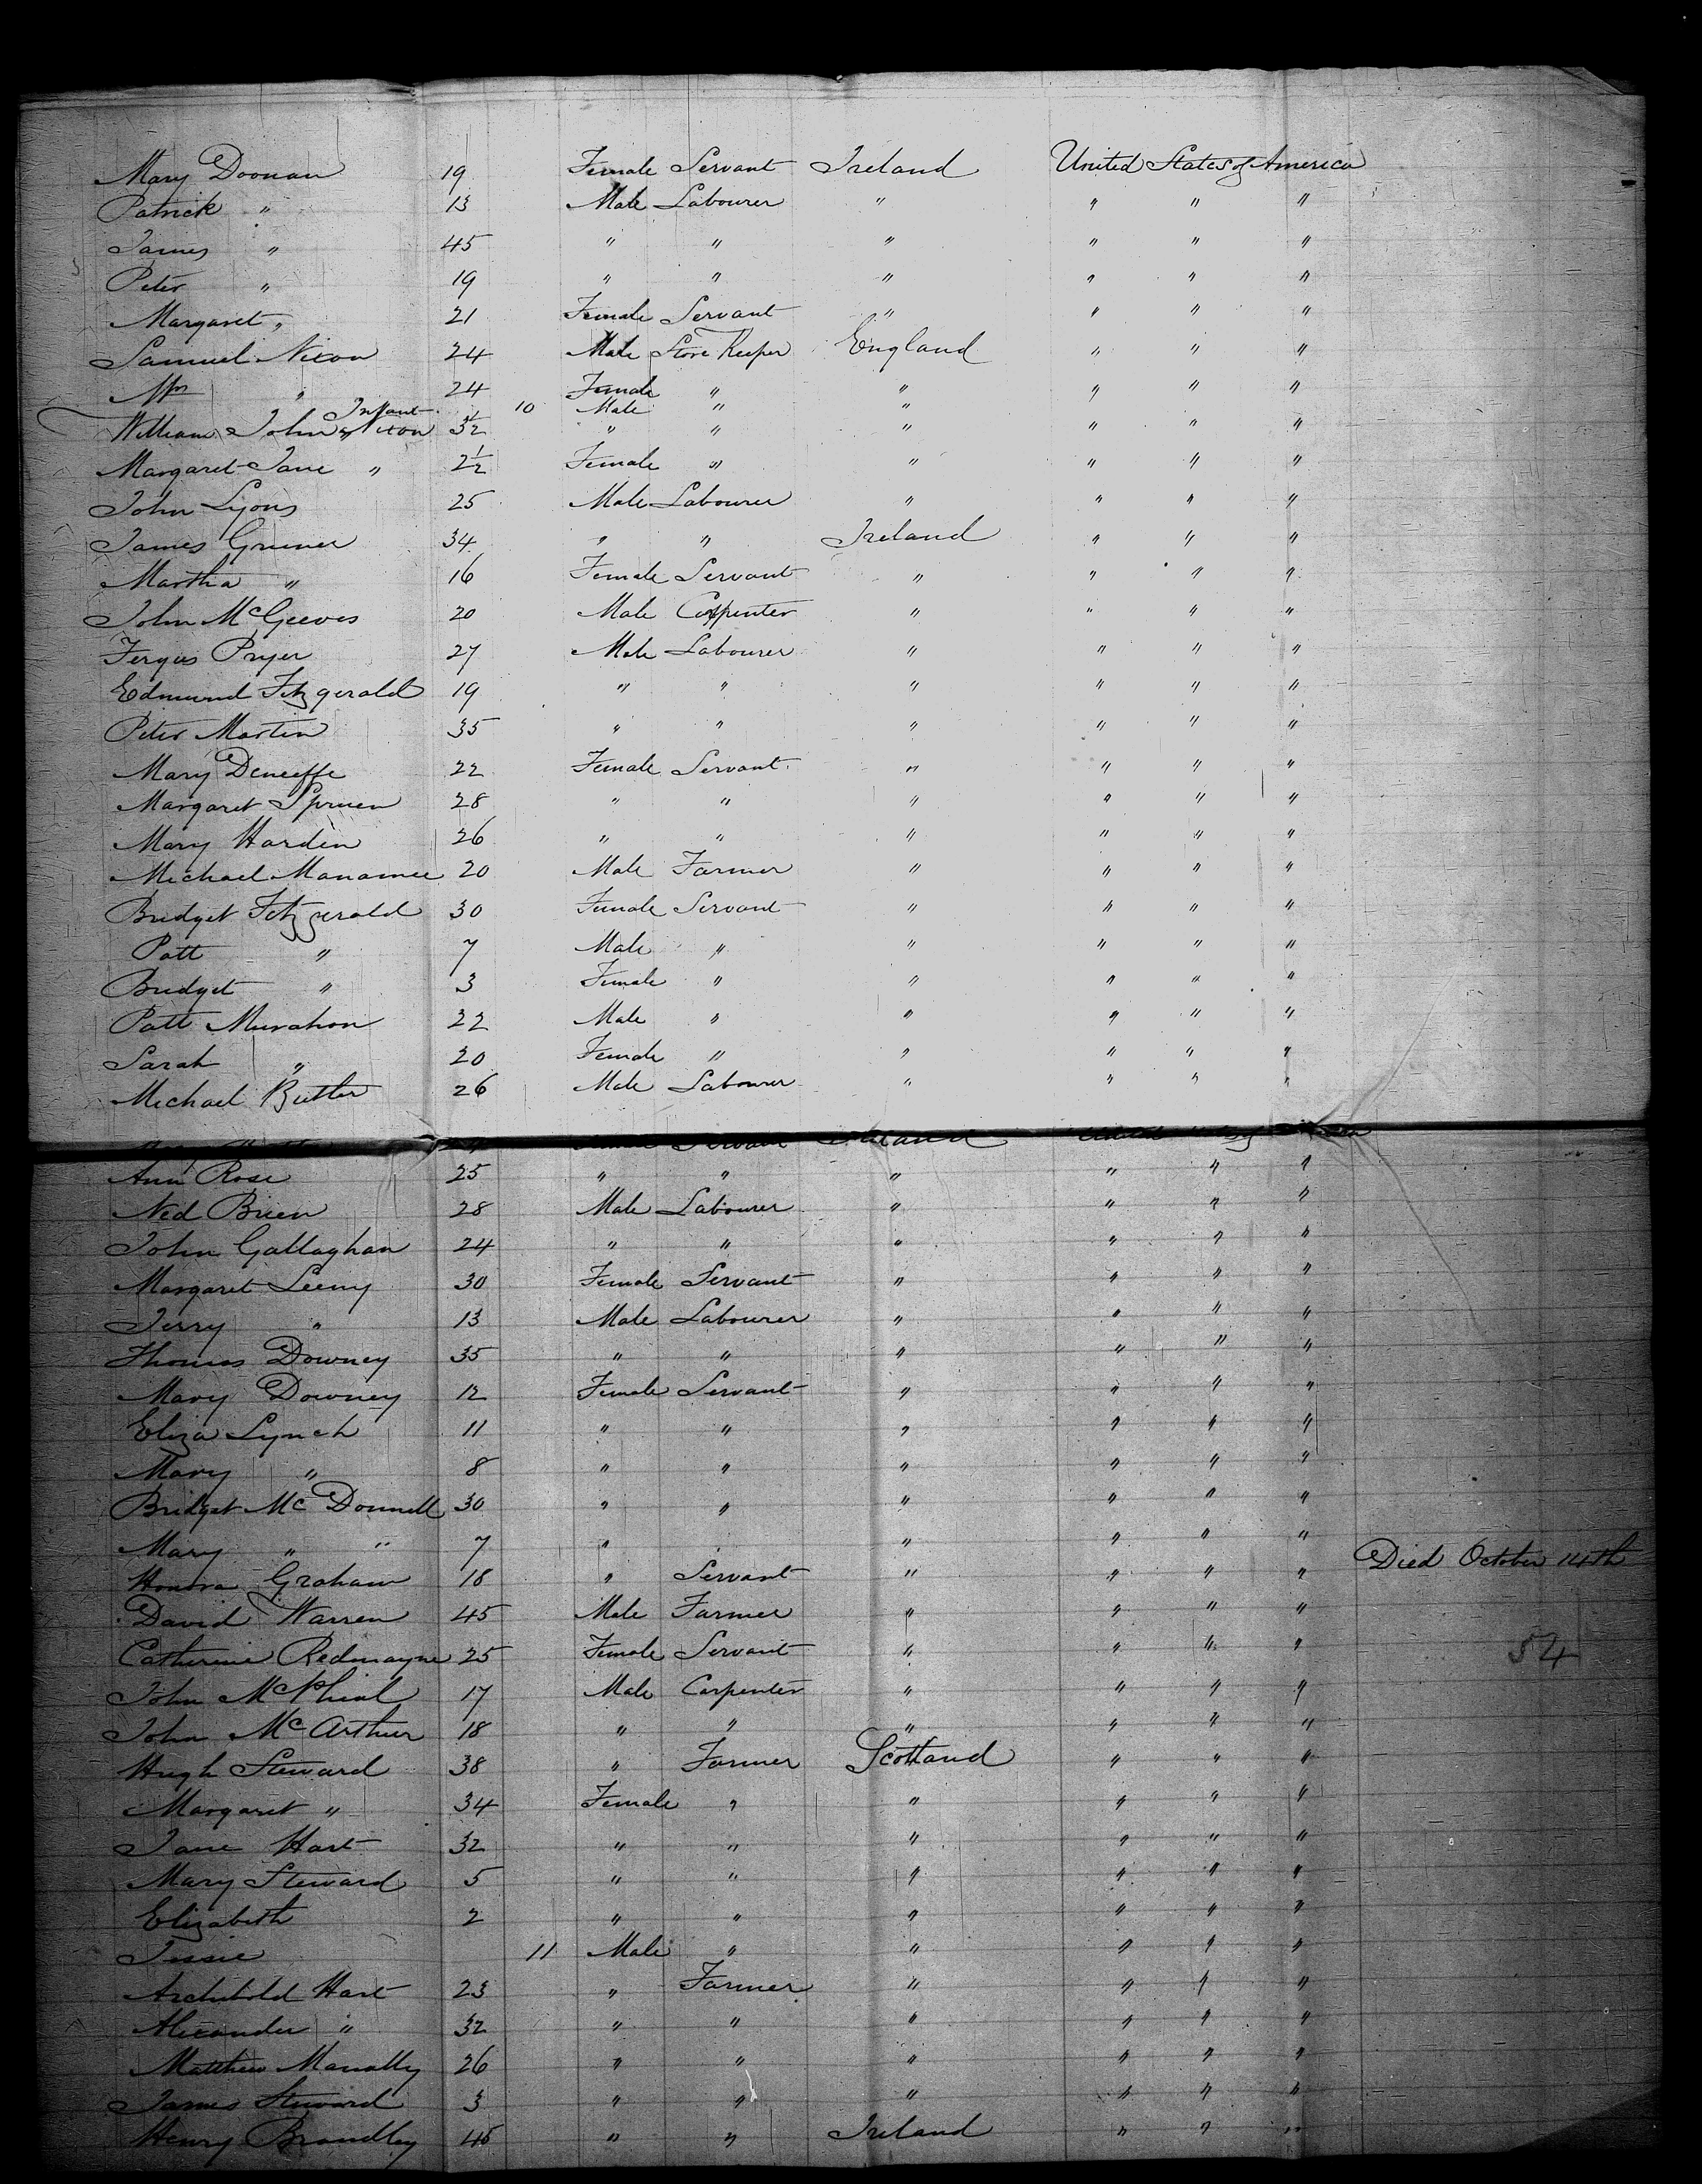 Mary Doonan 19 Female Servant Ireland United States of America
Patrick " 13 Male Labourer " " " "
James " 45 " " " " " "
Peter " 19 " " " " " "
Margaret " 21 Female Servant " " " "
Samuel Nixon 24 Male Store Keeper England " " "
Mrs " 24 Female " " " " "
Infant 10 Male " "
William John Nixon 3½ " " " " " "
Margaret Jane " 2½ Female " " " " "
John Lyons 25 Male Labourer " " " "
James Gruner 34 " " Ireland " " "
Martha " 16 Female Servant " " " "
John McGeeves 20 Male Carpenter " " " "
Fergus Pryer 27 Male Labourer " " " "
Edmund Fitzgerald 19 " " " " " "
Peter Martin 35 " " " " " "
Mary Deneeffe 22 Female Servant " " " "
Margaret Spruen 28 " " " " " "
Mary Harden 26 " " " " " "
Michael Manamee 20 Male Farmer " " " "
Bridget Fitzgerald 30 Female Servant " " " "
Patt " 7 Male " " " " "
Bridget " 3 Female " " " " "
Patt Murahon 22 Male " " " " "
Sarah " 20 Female " " " " "
Michael Butler 26 Male Labourer " " " "
Servant Ireland United
Ann Rose 25 " " " " " "
Ned Brien 28 Male Labourer " " " "
John Gallaghan 24 " " " " " "
Margaret Leeny 30 Female Servant " " " "
Jerry " 13 Male Labourer " " " "
Thomas Downey 35 " " " " " "
Mary Downey 12 Female Servant " " " "
Eliza Lynch 11 " " " " " "
Mary " 8 " " " " " "
Bridget McDonnell 30 " " " " " "
Mary " " 7 " " " " "
Honora Graham 18 " Servant " " " " Died October 14th
David Warren 45 Male Farmer " " " "
Catherine Redmayne 25 Female Servant " " " " 54
John McPhial 17 Male Carpenter " " " "
John McArthur 18 " " " " " "
Hugh Steward 38 " Farmer Scotland " " "
Margaret " 34 Female " " " " "
Jane Hart 32 " " " " " "
Mary Steward 5 " " " " " "
Elizabeth 2 " " " " " "
Jessie 11 Male " " " " "
Archibold Hart 23 " Farmer " " " "
Alexander " 32 " " " " " "
Matthew Manally 26 " " " " " "
James Steward 3 " " " " " "
Henry Brandley 45 " " Ireland " " "